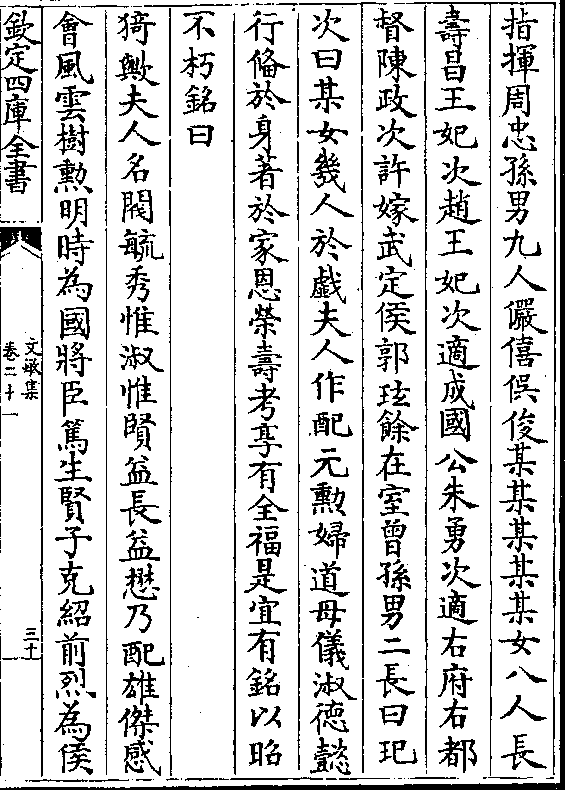 指揮周忠孫男九人儼僖俣俊某某某某某女八人長
壽昌王妃次趙王妃次適成國公朱勇次適右府右都
督陳政次許嫁武定侯郭玹餘在室曾孫男二長曰玘
次曰某女幾人於戲夫人作配元勲婦道母儀淑徳懿
行備於身著於家恩榮壽考享有全福是宜有銘以昭
不朽銘曰
猗歟夫人名閥毓秀惟淑惟賢益長益懋乃配雄傑感
會風雲樹勲明時為國將臣篤生賢子克紹前烈為侯
欽定四庫全書
文敏集
卷二十一
三十